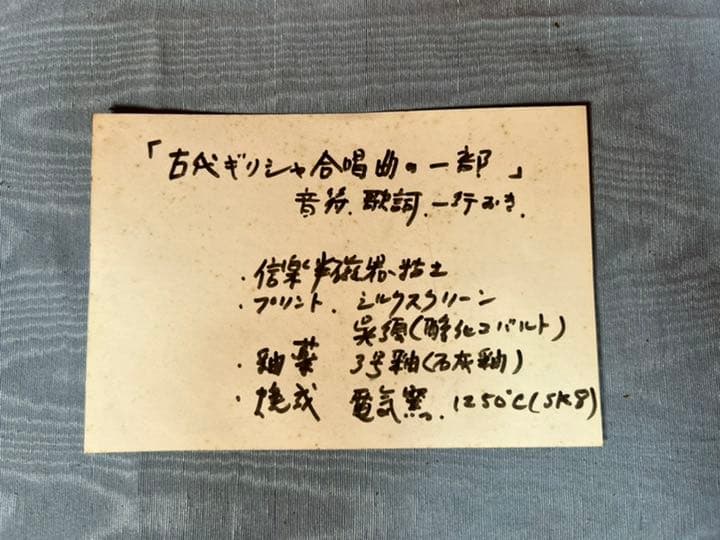 「古代ギリシャ合唱曲の一部」
音符、歌詞、一行おき、
・信楽半磁器粘土
・プリント、シルクスクリーン
呉須(酸化コバルト)
・釉薬 3号釉(石灰釉)
・焼成 電気窯、1250℃(SK8)